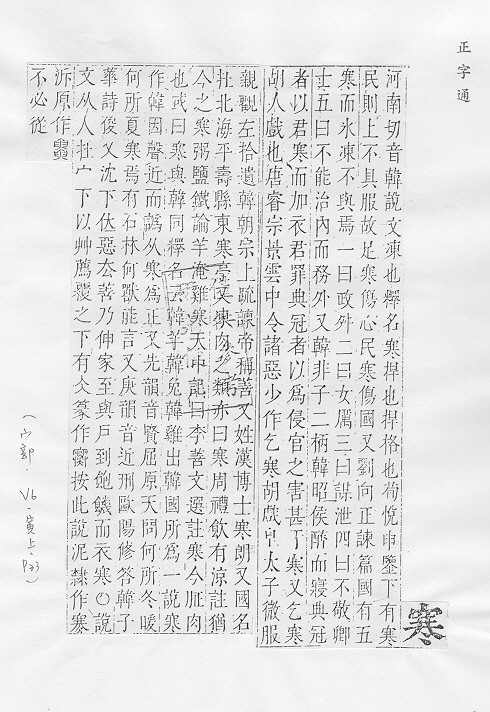 正字通
寒
河南切音韓說文凍也釋名寒捍也捍格也荀悅申鑒下有寒
民則上不具服故足寒傷心民寒傷國又劉向正諫篇國有五
寒而氷凍不與焉一曰政外二曰女厲三曰謀泄四曰不敬卿
士五曰不能治內而務外又韓非子二柄韓昭侯醉而寢典冠
者以君寒而加衣君罪典冠者以爲侵官之害甚于寒又乞寒
胡人戲也唐睿宗景雲中令諸惡少作乞寒胡戲皇太子微服
親觀左拾遺韓朝宗上疏諫帝稱善又姓漢博士寒朗又國名
在北海平壽縣東寒亭又凍肉之類亦曰寒周禮飲有涼註猶
今之寒粥鹽鐵論羊淹雞寒天中記曰李善文選註寒今胵肉
也或曰寒與韓同釋名云韓羊韓兔韓雞出韓國所爲一說寒
作韓因聲近而譌从寒爲正又先韻音賢屈原天問何所冬暖
何所夏寒焉有石林何獸能言又庚韻音近刑歐陽修答韓子
華詩後又沈下伏惡夳善乃伸家至與戸到飽饑而衣寒〇說
文从人在宀下以艸薦覆之下有仌篆作按此說泥隸作寒
泝原作
不必從
(宀部. V6-寅上. P33)